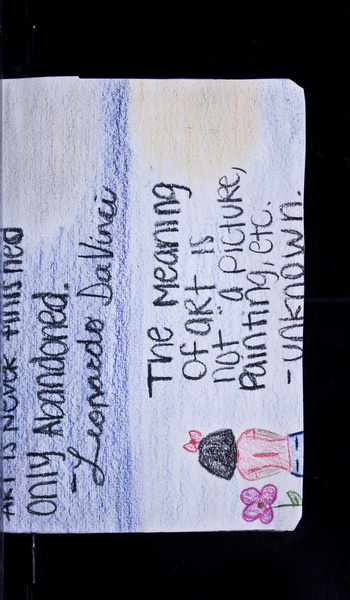 ART IS NEVER finished
only Abandoned.
-Leonardo DaVinci
The Meaning
of art is
not "a picture,
Painting, etc.
- unknown.